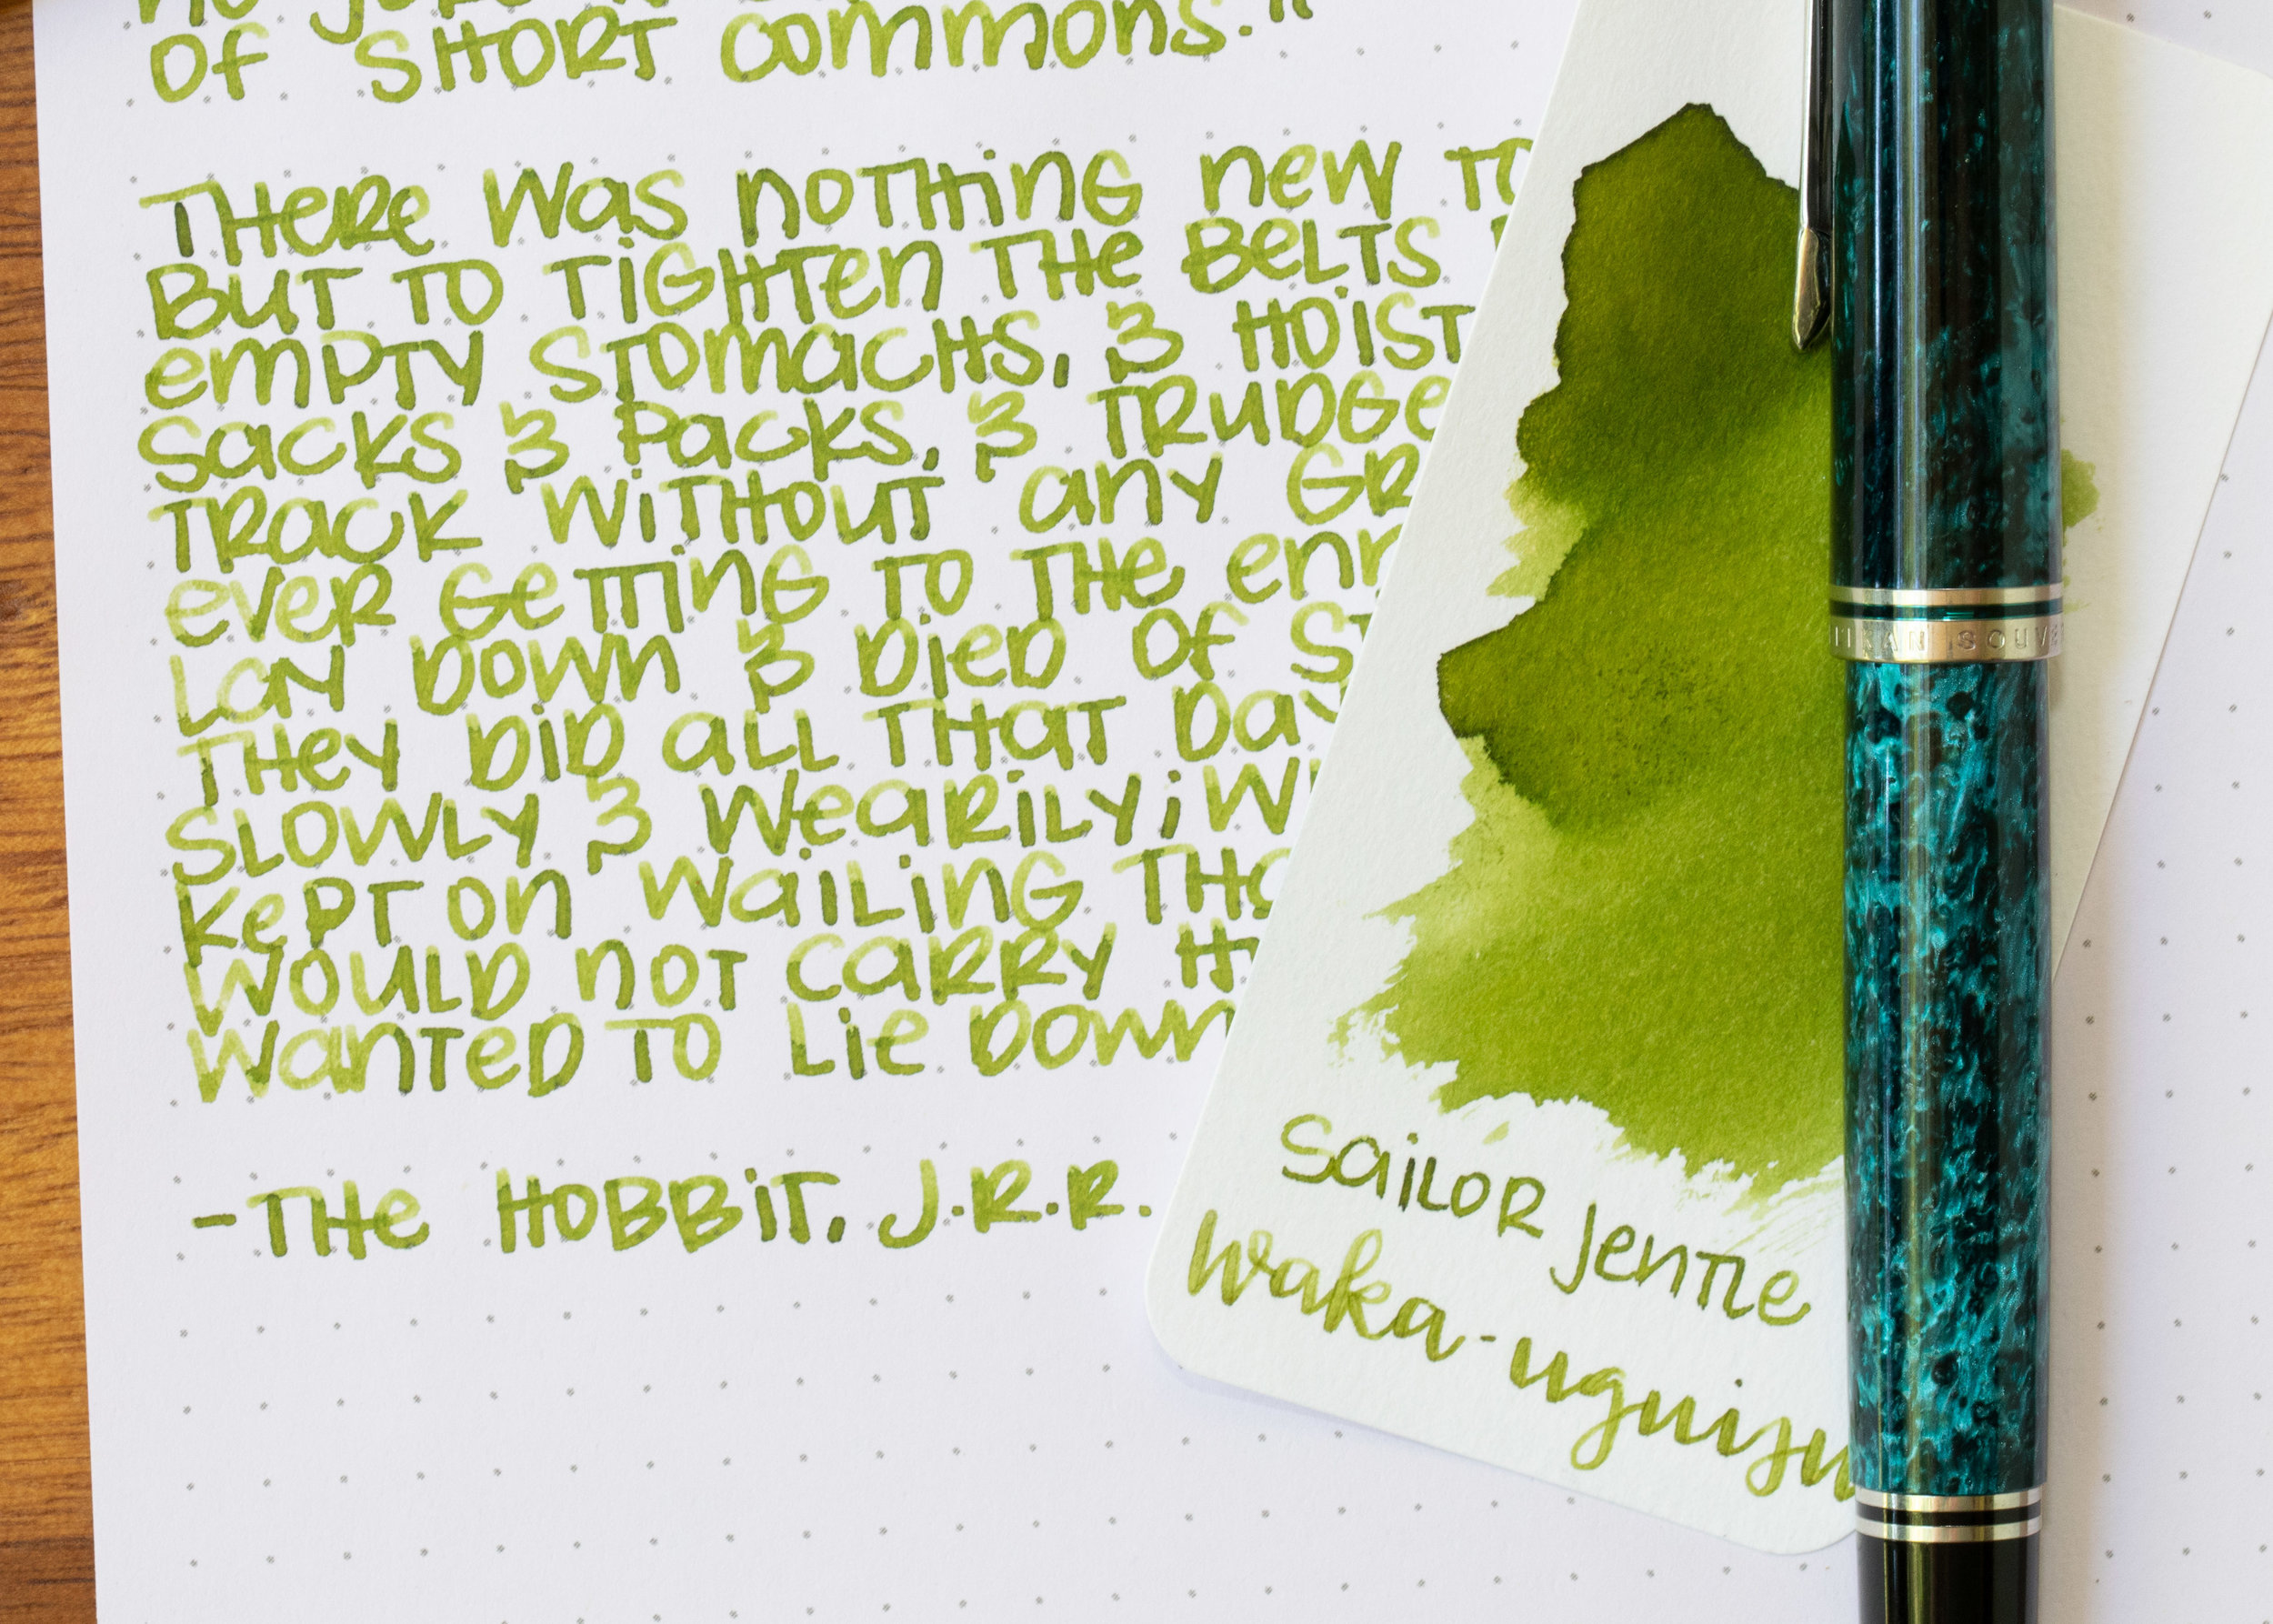 of short commons."
There was nothing new
but to tighten the belts
empty stomachs, & hoist
sacks & packs, & trudge
track without any
ever getting to the
lay down & died of
They did all that day
slowly & wearily; 
kept on wailing
would not carry
wanted to lie down
- The Hobbit, J.R.R.
Sailor Jentle
Waka-uguisu
SOUV